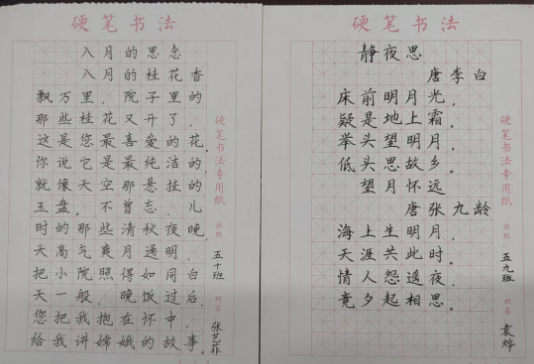 硬笔书法
八月的思念
八月的桂花香
飘万里。院子里的
那些桂花又开了。
这是您最喜爱的花。
你说它是最纯洁的
就像天空那悬挂的
玉盘。不曾忘。儿
时的那些清秋夜晚，
天高气爽月通明。
把小院照得如同白
天一般。晚饭过后，
您把我抱在怀中。
给我讲嫦娥的故事。
班级
五十班
姓名
张艺菲
硬笔书法专用纸
硬笔书法
静夜思
唐李白
床前明月光，
疑是地上霜。
举头望明月，
低头思故乡。
望月怀远
唐张九龄
海上生明月，
天涯共此时。
情人怨遥夜，
竟夕起相思。
硬笔书法专用纸
班级
五九班
姓名
袁烨